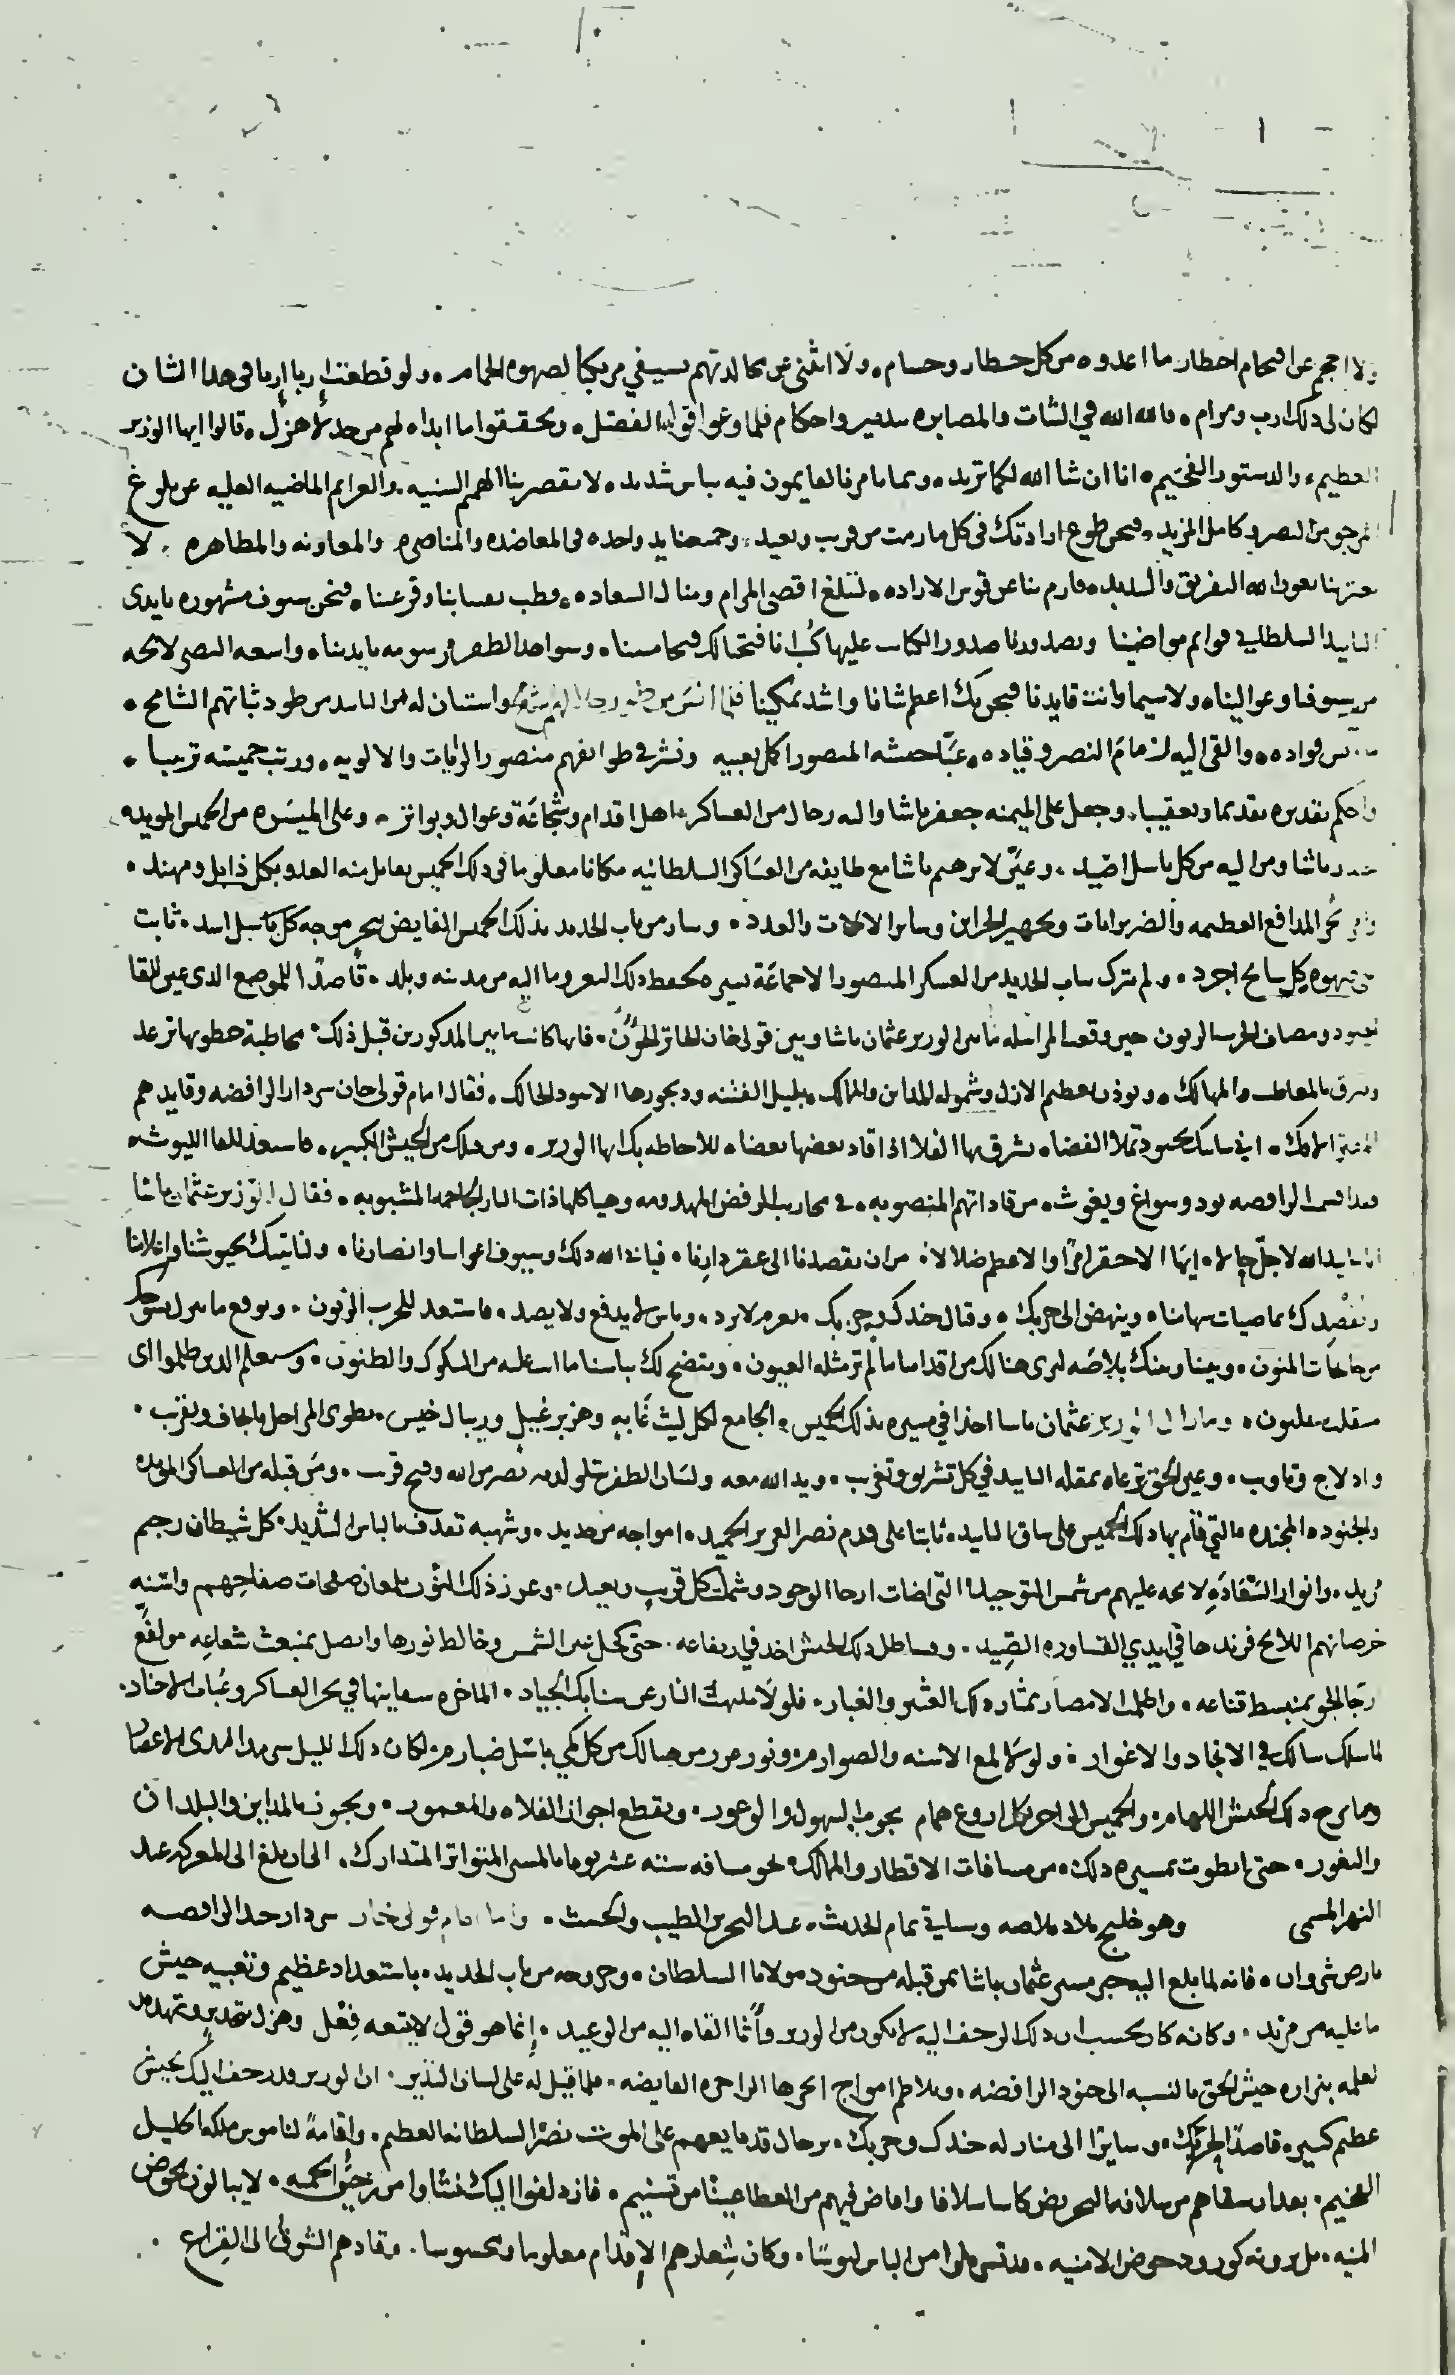 ولا احجم عن اقتحام اخطار ما اعدوه من كل خطار وحسام ولا انثنى عن مجالدتهم بسيفي مرتكبا لصهوة الحمام ولو قطعت اربا اربا في هدا الشان
لكان لي في ذلك ارب ومرام فالله الله في الثبات والمصابره بتدبير واحكام فلما وعوا قوله الفصل وتحققوا ما ابداه لهم من جد لا هزل قالوا ايها الوزير
العظيم والدستور الفخيم انا ان شا الله لكما تريد وبما تامرنا لقايمون فيه بباس شديد لا تقصر بنا الهمم السنيه والعزايم الماضيه العليه عن بلوغ
المرجو من النصر وكامل المزيد فنحن طوع ارادتك في كل ما رمت من قريب وبعيد وجميعنا يد واحده في المعاضده والمناصره والمعاونه والمظاهره لا
يعترينا بعون الله التفريق والتبديد فارم بنا عن قوس الاراده لتبلغ اقصى المرام ومنال السعاده فنحن سيوف مشهوره بايدى
التاييد السلطاني قوايم مواضينا وبصدورنا صدور الكتايب عليها كتب انا فتحنا لك فتحا مبينا وسواعد الظفر مرسومه بايدينا واسعه النصر لايحه
من سيوفنا وعوالينا ولا سيما وانت قايدنا فنحن بك اعظم شانا واشد تمكينا فلما انس من واستبان له من التاييد من طود ثباتهم الشامخ
فواده والقى اليه زمام النصر وقياده عبّا جيشه المنصور اكمل تعبيه ونشر في طوايفهم منصور الرايات والالويه ورتب خميسه ترتيبا
واحكم تقديره تقديما وتعقيبا وجعل على الميمنه جعفر باشا واليه رجال من العساكر اهل اقدام وشجاعة وعوال وبواتر وعلى الميسره من الخميس المويد
باشا ومن اليه من كل باسل اصيد وعيّن لابرهيم باشا مع طايفه من العساكر السلطانيه مكانا معلوما في ذلك الخميس يقابل منه العدو بكل ذابل ومهند
المدافع العظيمه والضربزانات وتجهيز الخزاين وساير الالات والعدد وسار من باب الحديد بذلك الخميس الفايض ببحر موجه كل باسل اسد ثابت
في صهوه كل سابح اجرد ولم يترك بباب الحديد من العسكر المنصور الا جماعة يسيره لحفظ ذلك الثغر وما اليه من مدينه وبلد قاصدًا للموضع الدى عين للقا
الجنود ومصاف الحرب الزبون حين وقعت المراسله ما بين الوزير عثمان باشا وبين قولي خان الخاتر الخوّن فانها كانت ما بين المدكورين قبل ذلك مخاطبة خطوبها ترعد
وتبرق بالمعاطب والمهالك وتوذن بعظيم الازل وشموله للمداين والممالك بليل الفتنه وديجورها الاسود الحالك فقال امام قولي خان سردار الرافضه وقايدهم
اني سابك بجنود تملا الفضا تشرق بها الفلا اذا قاد بعضها بعضا للاحاطه بك ايها الوزير ومن معك من الجيش الكبير فاستعد للقا الليوث
فقد اقسمت الرافضه بود وسواع ويغوث من قاداتهم المنصوبه في محاريب الرفض المهدومه وهياكلها ذات النار الجاحمه المشبوبه فقال الوزير عثمان باشا
لاجلّ جاها اينا الاحقر امرًا والاعظم ضلالا من ان تقصدنا الى عقر دارنا فيابا الله ذلك وسيوف اعواننا وانصارنا ولناتينك بجيوشنا واعلامنا
ونقصدك بماضيات سهامنا وينهض الى حربك وقتال جندك وحزبك بعزم لا يرد وباس لا يدفع ولا يصد فاستعد للحرب الزبون وتوقع ما ينزل بسوحك
من جايحات المنون وبيننا وبينك بلاصه لترى هنالك من اقدامنا ما لم تر مثله العيون ويتضح لك بباسنا ما اسفله من الشكوك والظنون وسيعلم الدين ظلموا اى
منقلب ينقلبون وما زال الوزير عثمان باشا اخذا في مسيره بذلك الخميس الجامع لكل ليث غابه وهزبر غيل وريبال خيس يطوى المراحل بايجاف وتقريب
وادلاج وتاويب وعين الحق ترعاه بمقله التاييد في كل تشريق وتغريب ويد الله معه ولسان الظفر يتلو لديه نصر من الله وفتح قريب ومن قبله من العساكر المويده
والجنود المجنده بالتي قام بها ذلك الخميس على ساق التاييد ثابتا على قدم نصر العزيز الحميد امواجه من حديد وشهبه تقدف بالباس الشديد كل شيطان رجيم
مريد وانوار السّعَادَةِ لايحه عليهم من شمس التوحيد التى اضات ارجا الوجود وشملت كل قريب وبعيد وعزز ذلك النور بلمعان صفحات صفاحهم واسنه
خرصانهم اللايح فرندها في ايدي القساوره الصّيد وقسطل ذلك الجيش اخد في ارتفاعه حتى كحل عين الشمس وخالط نورها واتصل بمنبعث شعاعه مواقع
ارجا الجو بمنبسط قناعه واظلمت الامصار بمثار دلك العثير والغبار فلولا ملتهب النار عن سنابك الجياد الماخره سفاينها في بحر العساكر وعباب الاجناد
لما سلك سالك في الانجاد والاغوار ولولا لمع الاسنه والصوارم ونور غرر من هنالك من كل كمي باسل ضبارم لكان ذلك الليل سرمدا لمدى الاعصار
وما برح ذلك الجيش اللهام والخميس الى اخر كل اروع همام يجوب السهول والوعور ويقطع اجواز الفلاه والمعمور ويجوز بالمداين والبلدان
والثغور حتى انطوت بمسيره ذلك من مسافات الاقطار والممالك نحو مسافه ستة عشر يوما بالمسير المتواتر المتدارك الى ان بلغ الى المعركه عند
النهر المسمى وهو خليج بلاد بلاصه وسياتي تمام الحديث عند البحر الطيب والخبيث واما امام قولي خان سردار جند الرافضه
بارض شروان فانه لما بلغ اليه خبر مسير عثمان باشا بمن قبله من جنود مولانا السلطان وخروجه من باب الحديد باستعداد عظيم وتعبيه جيش
ما عليه من مزيد وكانه كان يحسب ان ذلك الزحف اليه لا يكون من الوزير وان ما القاه اليه من الوعيد انما هو قول لا يتبعه فعل وهزل تقدير وتهديد
لعلمه بنزاره جيش الحق بالنسبه الى جنود الرافضه وتلاطم امواج ابحرها الزاخره الفايضه فلما قيل له على لسان النذير ان الوزير قد زحف اليك بجيش
عظيم كبير قاصدًا لحربك وسايرًا الى منازله جندك وحزبك برجال قد بايعهم على الموت نصرًا لسلطانه العظيم واقامةً لناموس ملكه الجليل
الفخيم بعد ان سقاهم من سلافه التحريض كاسا سلافا وافاض فيهم من العطا عينا من تسنيم فازدلفوا اليك نشاوا من رحيق الحميه لا يبالون بخوض
المنيه بل يرونه كورود حوض الامنيه قد تسربلوا من الباس لبوسًا وكان شعارهم الاقدام معلوما ومحسوسا وقادهم الشوق الى القراع